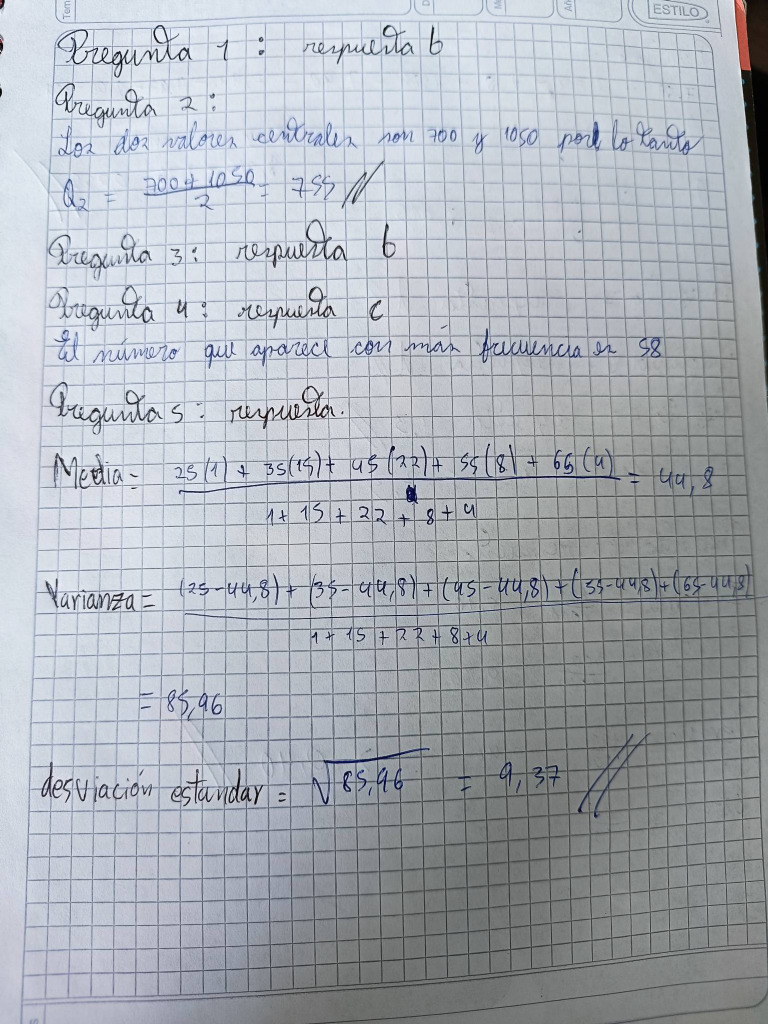 ESTILO
Pregunta 1 : respuesta b
Pregunta 2 :
Los dos valores centrales son 700 y 1050 por lo tanto
Q2 = 700 + 1050 / 2 = 755 //
Pregunta 3 : respuesta b
Pregunta 4 : respuesta c
El número que aparece con más frecuencia es 58
Pregunta 5 : respuesta.
Media = 25(1) + 35(15) + 45(22) + 55(8) + 65(4) / 1 + 15 + 22 + 8 + 4 = 44,8
Varianza = (25-44,8) + (35-44,8) + (45-44,8) + (55-44,8) + (65-44,8) / 1 + 15 + 22 + 8 + 4
= 85,96
desviación estandar = √85,96 = 9,37 //